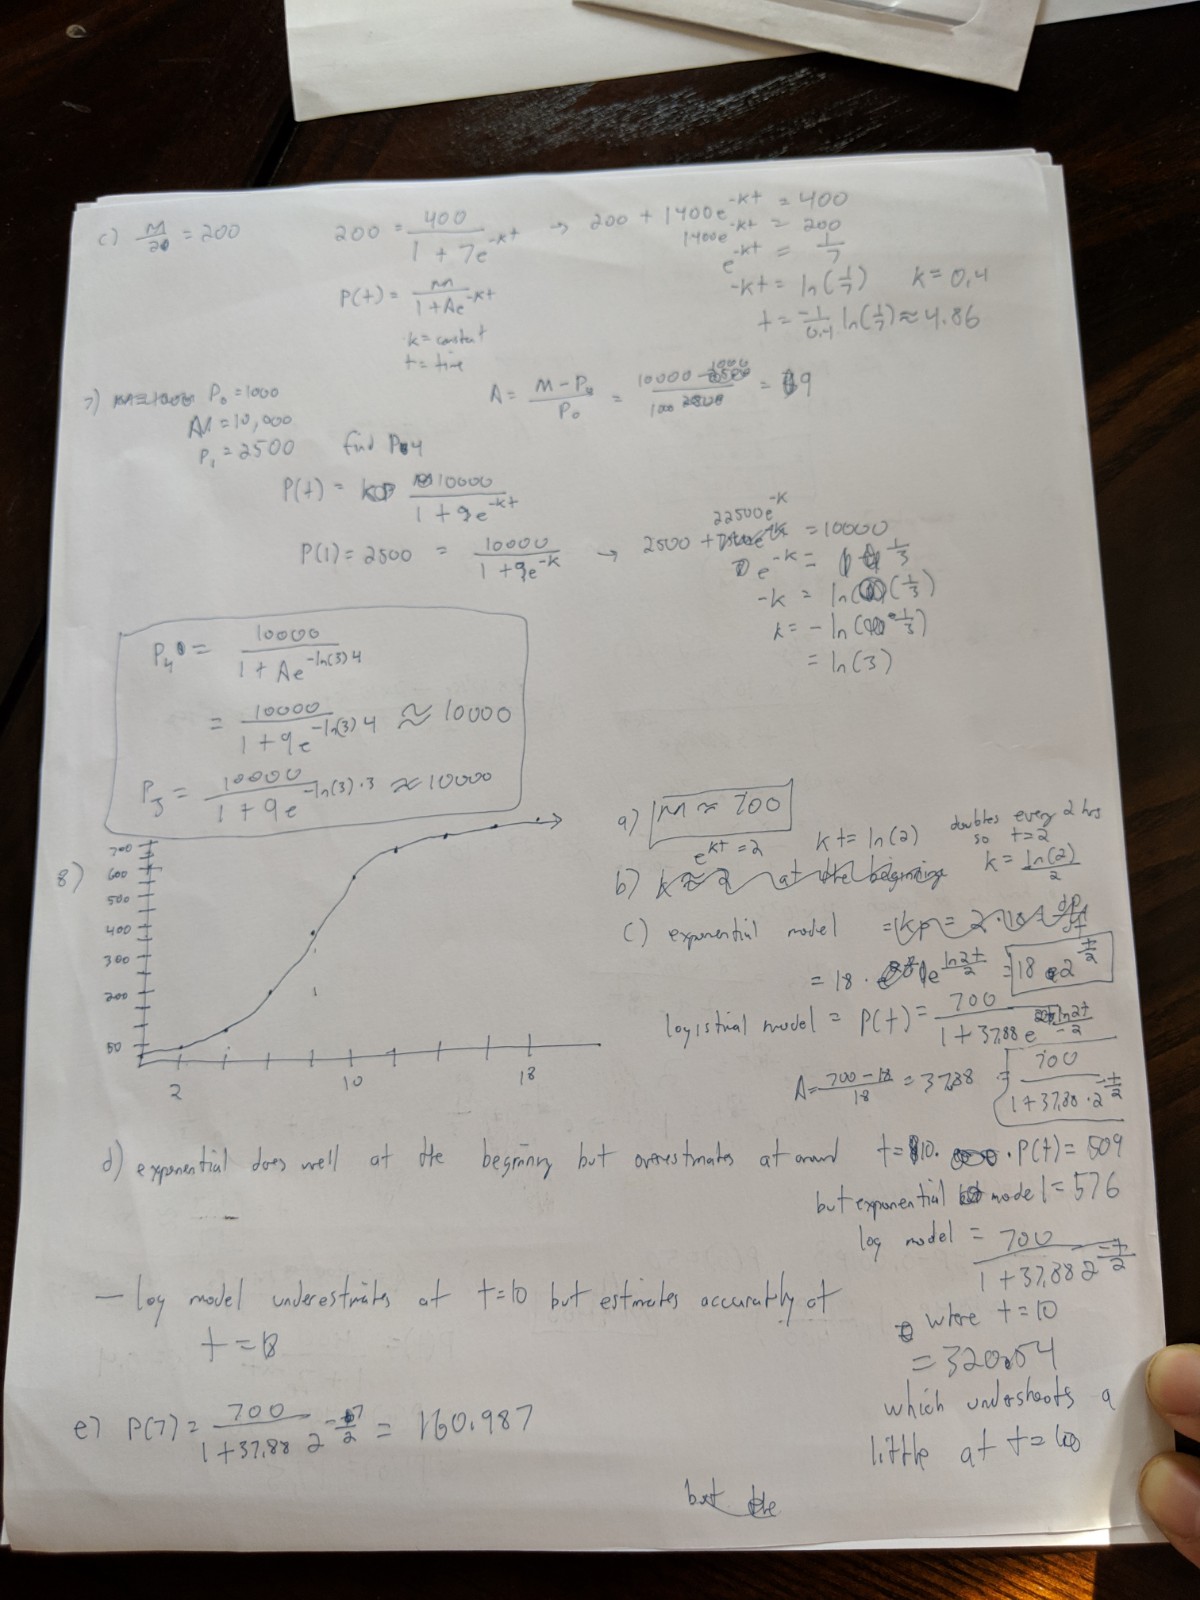 c) M/20 = 200
200 = 400/(1 + 7e^-kt) → 200 + 1400e^-kt = 400
1400e^-kt = 200
e^-kt = 1/7
-kt = ln(1/7) k = 0.4
t = -1/0.4 ln(1/7) ≈ 4.86
P(t) = M/(1+Ae^-kt)
k = constant
t = time
7) P₀ = 1000
M = 10,000
P₁ = 2500 find P 4
A = (M - P₀)/P₀ = (10000 - 1000)/1000 = 9
P(t) = 10000/(1 + 9e^-kt)
P(1) = 2500 = 10000/(1 + 9e^-k) → 2500 + 22500e^-k = 10000
e^-k = 1/3
-k = ln(1/3)
k = - ln(1/3)
= ln(3)
P₄ = 10000/(1 + Ae^-ln(3)4)
= 10000/(1 + 9e^-ln(3)4) ≈ 10000
P₃ = 10000/(1 + 9e^-ln(3)·3) ≈ 10000
8)
700
600
500
400
300
200
50
2 10 18
a) M ≈ 700
e^kt = 2 kt = ln(2) doubles every 2 hrs
so t = 2
k = ln(2)/2
b) k ≈ 2 at the beginning
c) exponential model = kp = 2·18 = dP/dt
= 18 · e^(ln2t/2) = 18 · 2^(t/2)
logistrial model = P(t) = 700/(1 + 37.88e^(-ln2t/2))
A = (700 - 18)/18 = 37.88 = 700/(1 + 37.88 · 2^(-t/2))
d) exponential does well at the beginning but overestimates at around t = 10. P(t) = 509
but exponential model = 576
log model = 700/(1 + 37.88 2^(-t/2))
where t = 10
= 320.54
which undershoots a
little at t = 10
— log model underestimates at t=10 but estimates accurately at
t = 18
e) P(7) = 700/(1 + 37.88 2^(-7/2)) = 160.987
but the